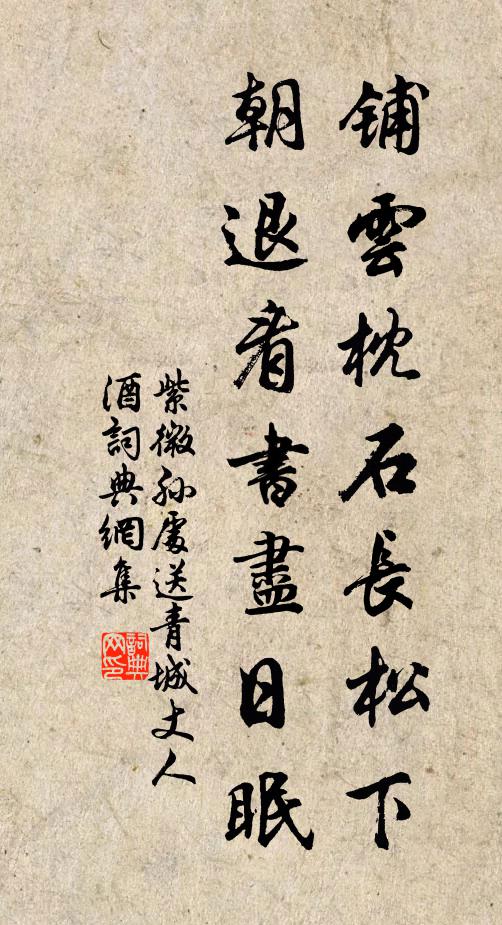 鋪雲枕石長松下
朝退看書盡日眠
紫微孫處送青城丈人
酒詞典網集
詞典网印